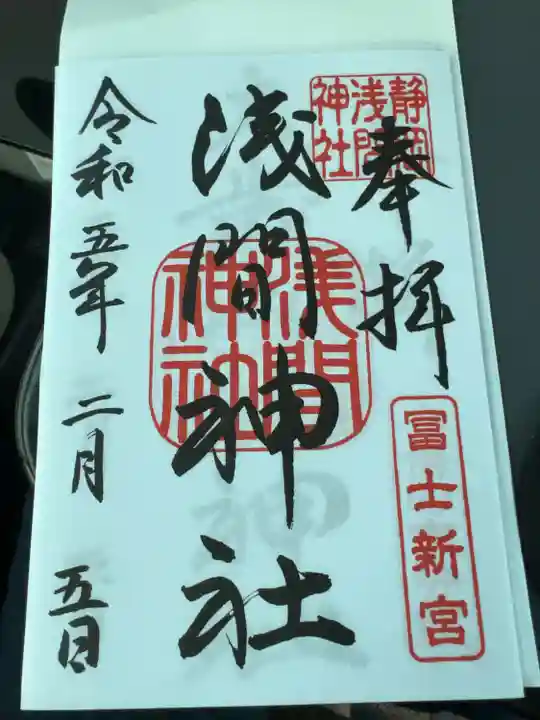 奉拝
静岡
浅間
神社
冨士新宮
浅間神社
浅間
神社
令和五年二月五日